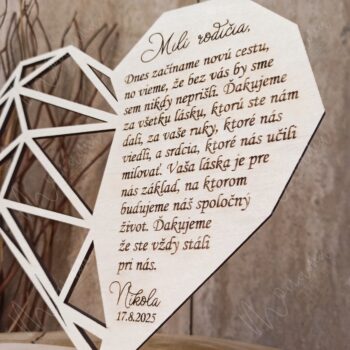 Milí rodičia,
Dnes začíname novú cestu,
no vieme, že bez vás by sme
sem nikdy neprišli. Ďakujeme
za všetku lásku, ktorú ste nám
dali, za vaše ruky, ktoré nás
viedli, a srdcia, ktoré nás učili
milovať. Vaša láska je pre
nás základ, na ktorom
budujeme náš spoločný
život. Ďakujeme
že ste vždy stáli
pri nás.
Nikola
17.8.2025